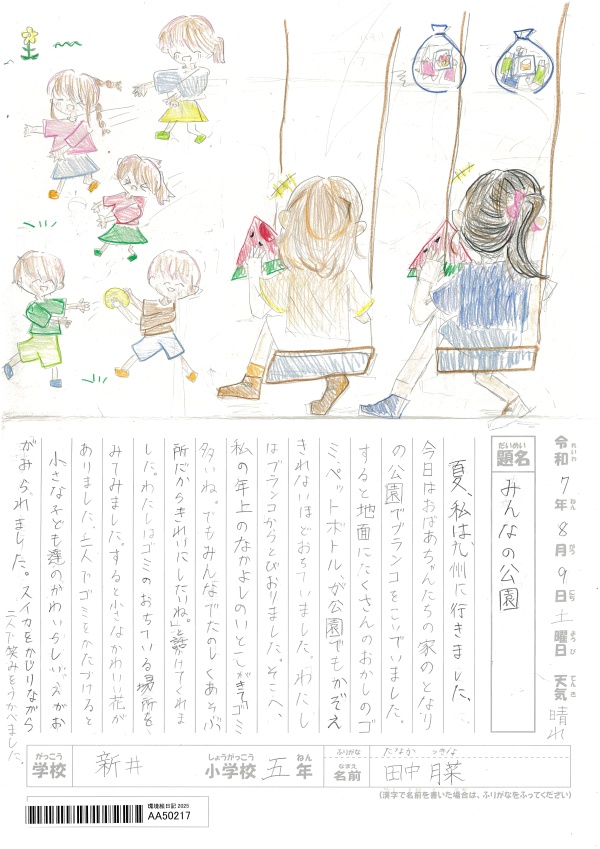 令和 7年 8月 9日 土曜日 天気 晴れ
れいわ ねん がつ にち ようび てんき
だいめい
題名 みんなの公園
夏、私は、九州に行きました。
今日はおばあちゃんたちの家のとなり
の公園でブランコをこいでいました。
すると地面にたくさんのおかしのゴ
ミ、ペットボトル、が公園でもかぞえ
きれないほどおちていました。わたし
はブランコからとびおりました。そこへ、
私の年上のなかよしのいとこがきて「ゴミ
多いね。でもみんなでたのしくあそぶ
所だからきれいにしたいね。」と話かけてくれま
した。わたしはゴミのおちている場所を、
みてみました。すると小さなかわいい花が
ありました、二人でゴミをかたづけると
小さな子ども達のかわいらしい、えがお
がみられました。スイカをかじりながら
二人で笑みをうかべました。
がっこう
学校 新井
しょうがっこう ねん
小学校 五年
ふりがな たなか つきな
なまえ
名前 田中 月菜
(漢字で名前を書いた場合は、ふりがなをふってください)
環境絵日記 2025
AA50217